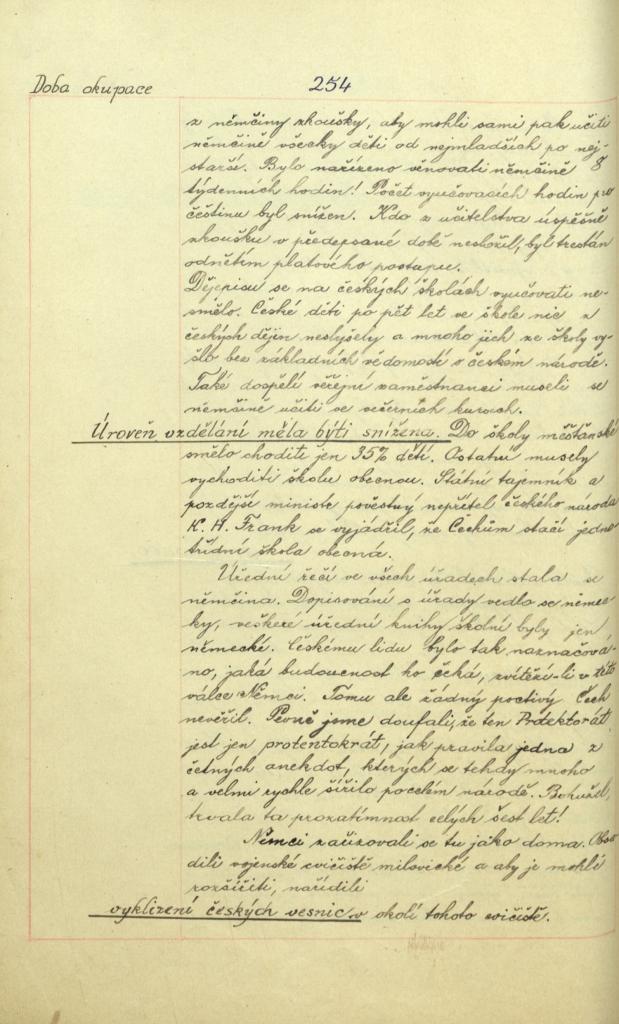 Doba okupace
254
z němčiny zkoušky, aby mohli sami pak učiti
němčině všecky děti od nejmladších po nej-
starší. Bylo nařízeno věnovati němčině 8
týdenních hodin! Počet vyučovacích hodin pro
češtinu byl snížen. Kdo z učitelstva úspěšně
zkoušku v předepsané době nesložil, byl trestán
odnětím platového postupu.
Dějepisu se na českých školách vyučovati ne-
smělo. České děti po pět let ve škole nic z
českých dějin neslyšely a mnoho jich ze školy vy-
šlo bez základních vědomostí o českém národě.
Také dospělí veřejní zaměstnanci museli se
němčině učiti ve večerních kursech.
Úroveň vzdělání měla býti snížena. Do školy měšťanské
smělo choditi jen 35% dětí. Ostatní musely
vychoditi školu obecnou. Státní tajemník a
pozdější ministr pověstný nepřítel českého národa
K. H. Frank se vyjádřil, že Čechům stačí jedno
třídní škola obecná.
Úřední řečí ve všech úřadech stala se
němčina. Dopisování s úřady vedlo se němec-
ky, veškeré úřední knihy školní byly jen
německé. Českému lidu bylo tak naznačová-
no, jaká budoucnost ho čeká, zvítězí-li v této
válce Němci. Tomu ale žádný poctivý Čech
nevěřil. Pevně jsme doufali, že ten Protektorát
jest jen protentokrát, jak pravila jedna z
četných anekdot, kterých se tehdy mnoho
a velmi rychle šířilo po celém národě. Bohužel,
trvala ta prozatímnost celých šest let!
Němci zařizovali se tu jako doma. Obsa
dili vojenské cvičiště milovické a aby je mohli
rozšířiti, nařídili
vyklizení českých vesnic v okolí tohoto cvičiště.